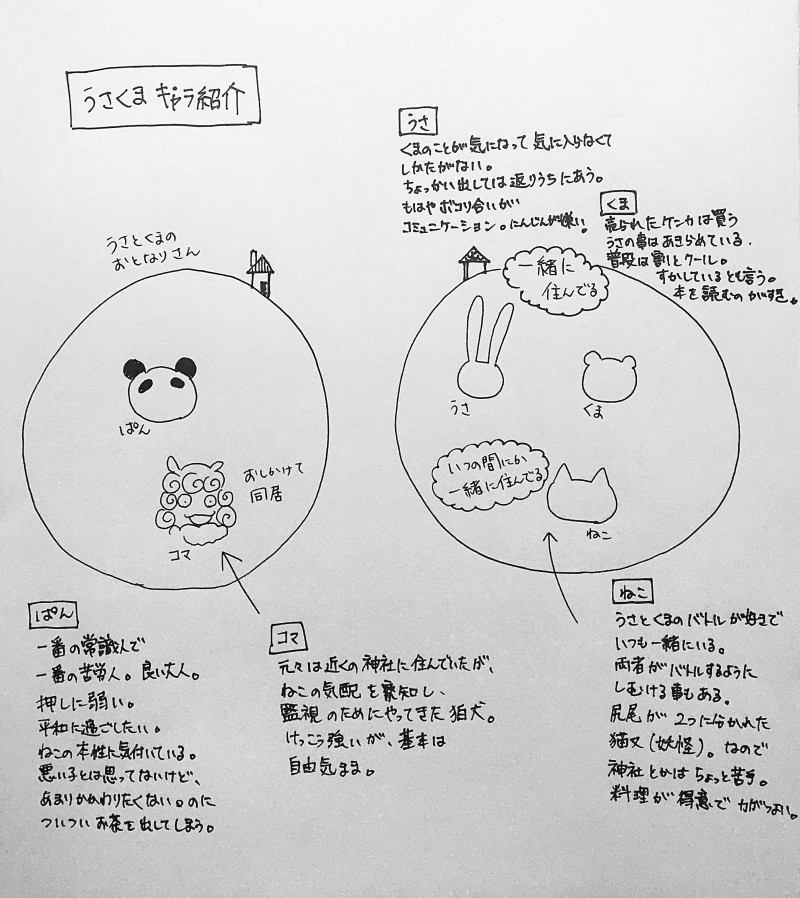 うさくま キャラ紹介
うさ
くまのことが気になって 気に入らなくて
しかたがない。
ちょっかい出しては返りうちにあう。
もはやボコり合いが
コミュニケーション。にんじんが嫌い。
くま
売られたケンカは買う
うさの事はあきらめている.
普段は割とクール。
すかしているとも言う。
本を読むのがすき。
うさとくまの
おとなりさん
一緒に
住んでる
ぱん
うさ
くま
おしかけて
同居
コマ
いつの間にか
一緒に住んでる
ねこ
ぱん
一番の常識人で
一番の苦労人。良い大人。
押しに弱い。
平和に過ごしたい。
ねこの本性に気付いている。
悪い子とは思ってないけど、
あまりかかわりたくない。のに
ついつい お茶を出してしまう。
コマ
元々は近くの神社に住んでいたが、
ねこの気配を察知し、
監視のためにやってきた狛犬。
けっこう強いが、基本は
自由気まま。
ねこ
うさとくまのバトルが好きで
いつも一緒にいる。
両者がバトルするように
しむける事もある。
尻尾が2つに分かれた
猫又(妖怪)。なので
神社とかはちょっと苦手。
料理が得意で力がつよい。